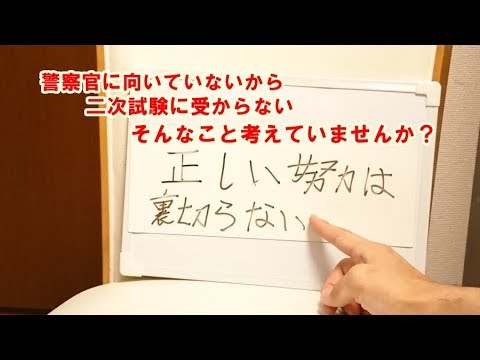 警察官に向いていないから
二次試験に受からない
そんなこと考えていませんか？
正しい努力は
裏切らない